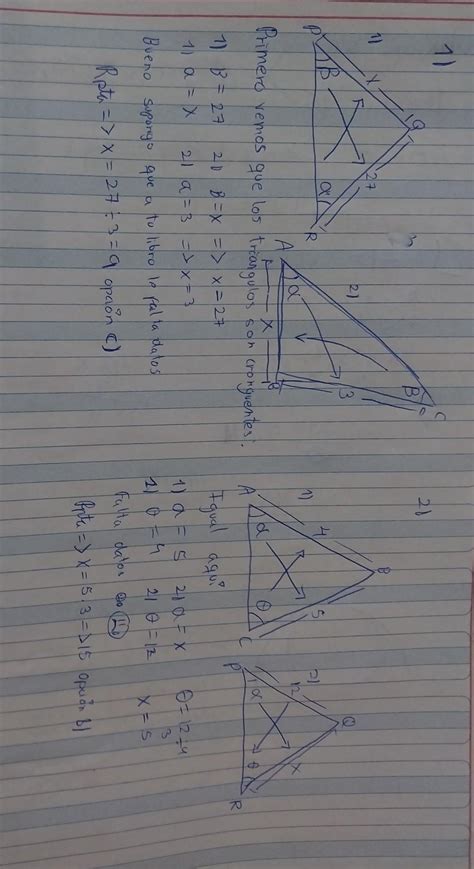 1)
1)
P
Q
R
x
27
β
α
2)
A
B
C
α
β
3
x
Primero vemos que los triángulos son crongruentes:
1) β = 27 2) β = x => x = 27
1) α = x 2) α = 3 => x = 3
Bueno supongo que a tu libro le falta datos
Rpta => x = 27 ÷ 3 = 9 opción C)
2)
1)
A
B
C
4
5
α
θ
2)
P
Q
R
12
x
α
θ
Igual aquí
1) α = 5 2) α = x θ = 12 ÷ 4
3
1) θ = 4 2) θ = 12 x = 5
Falta datos
Rpta => x = 5 . 3 => 15 opción B)